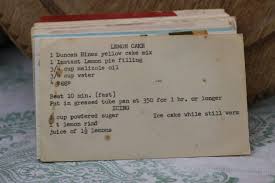 LEMON CAKE
1 Duncan Hines yellow cake mix
1 Instant Lemon pie filling
3/4 cup Malizole oil
3/4 cup water
4 eggs
Beat 10 min. (fast)
Put in greased tube pan at 350 for 1 hr. or longer
ICING
cup powdered sugar Ice cake while still warm
1 t lemon rind
Juice of 1½ lemons